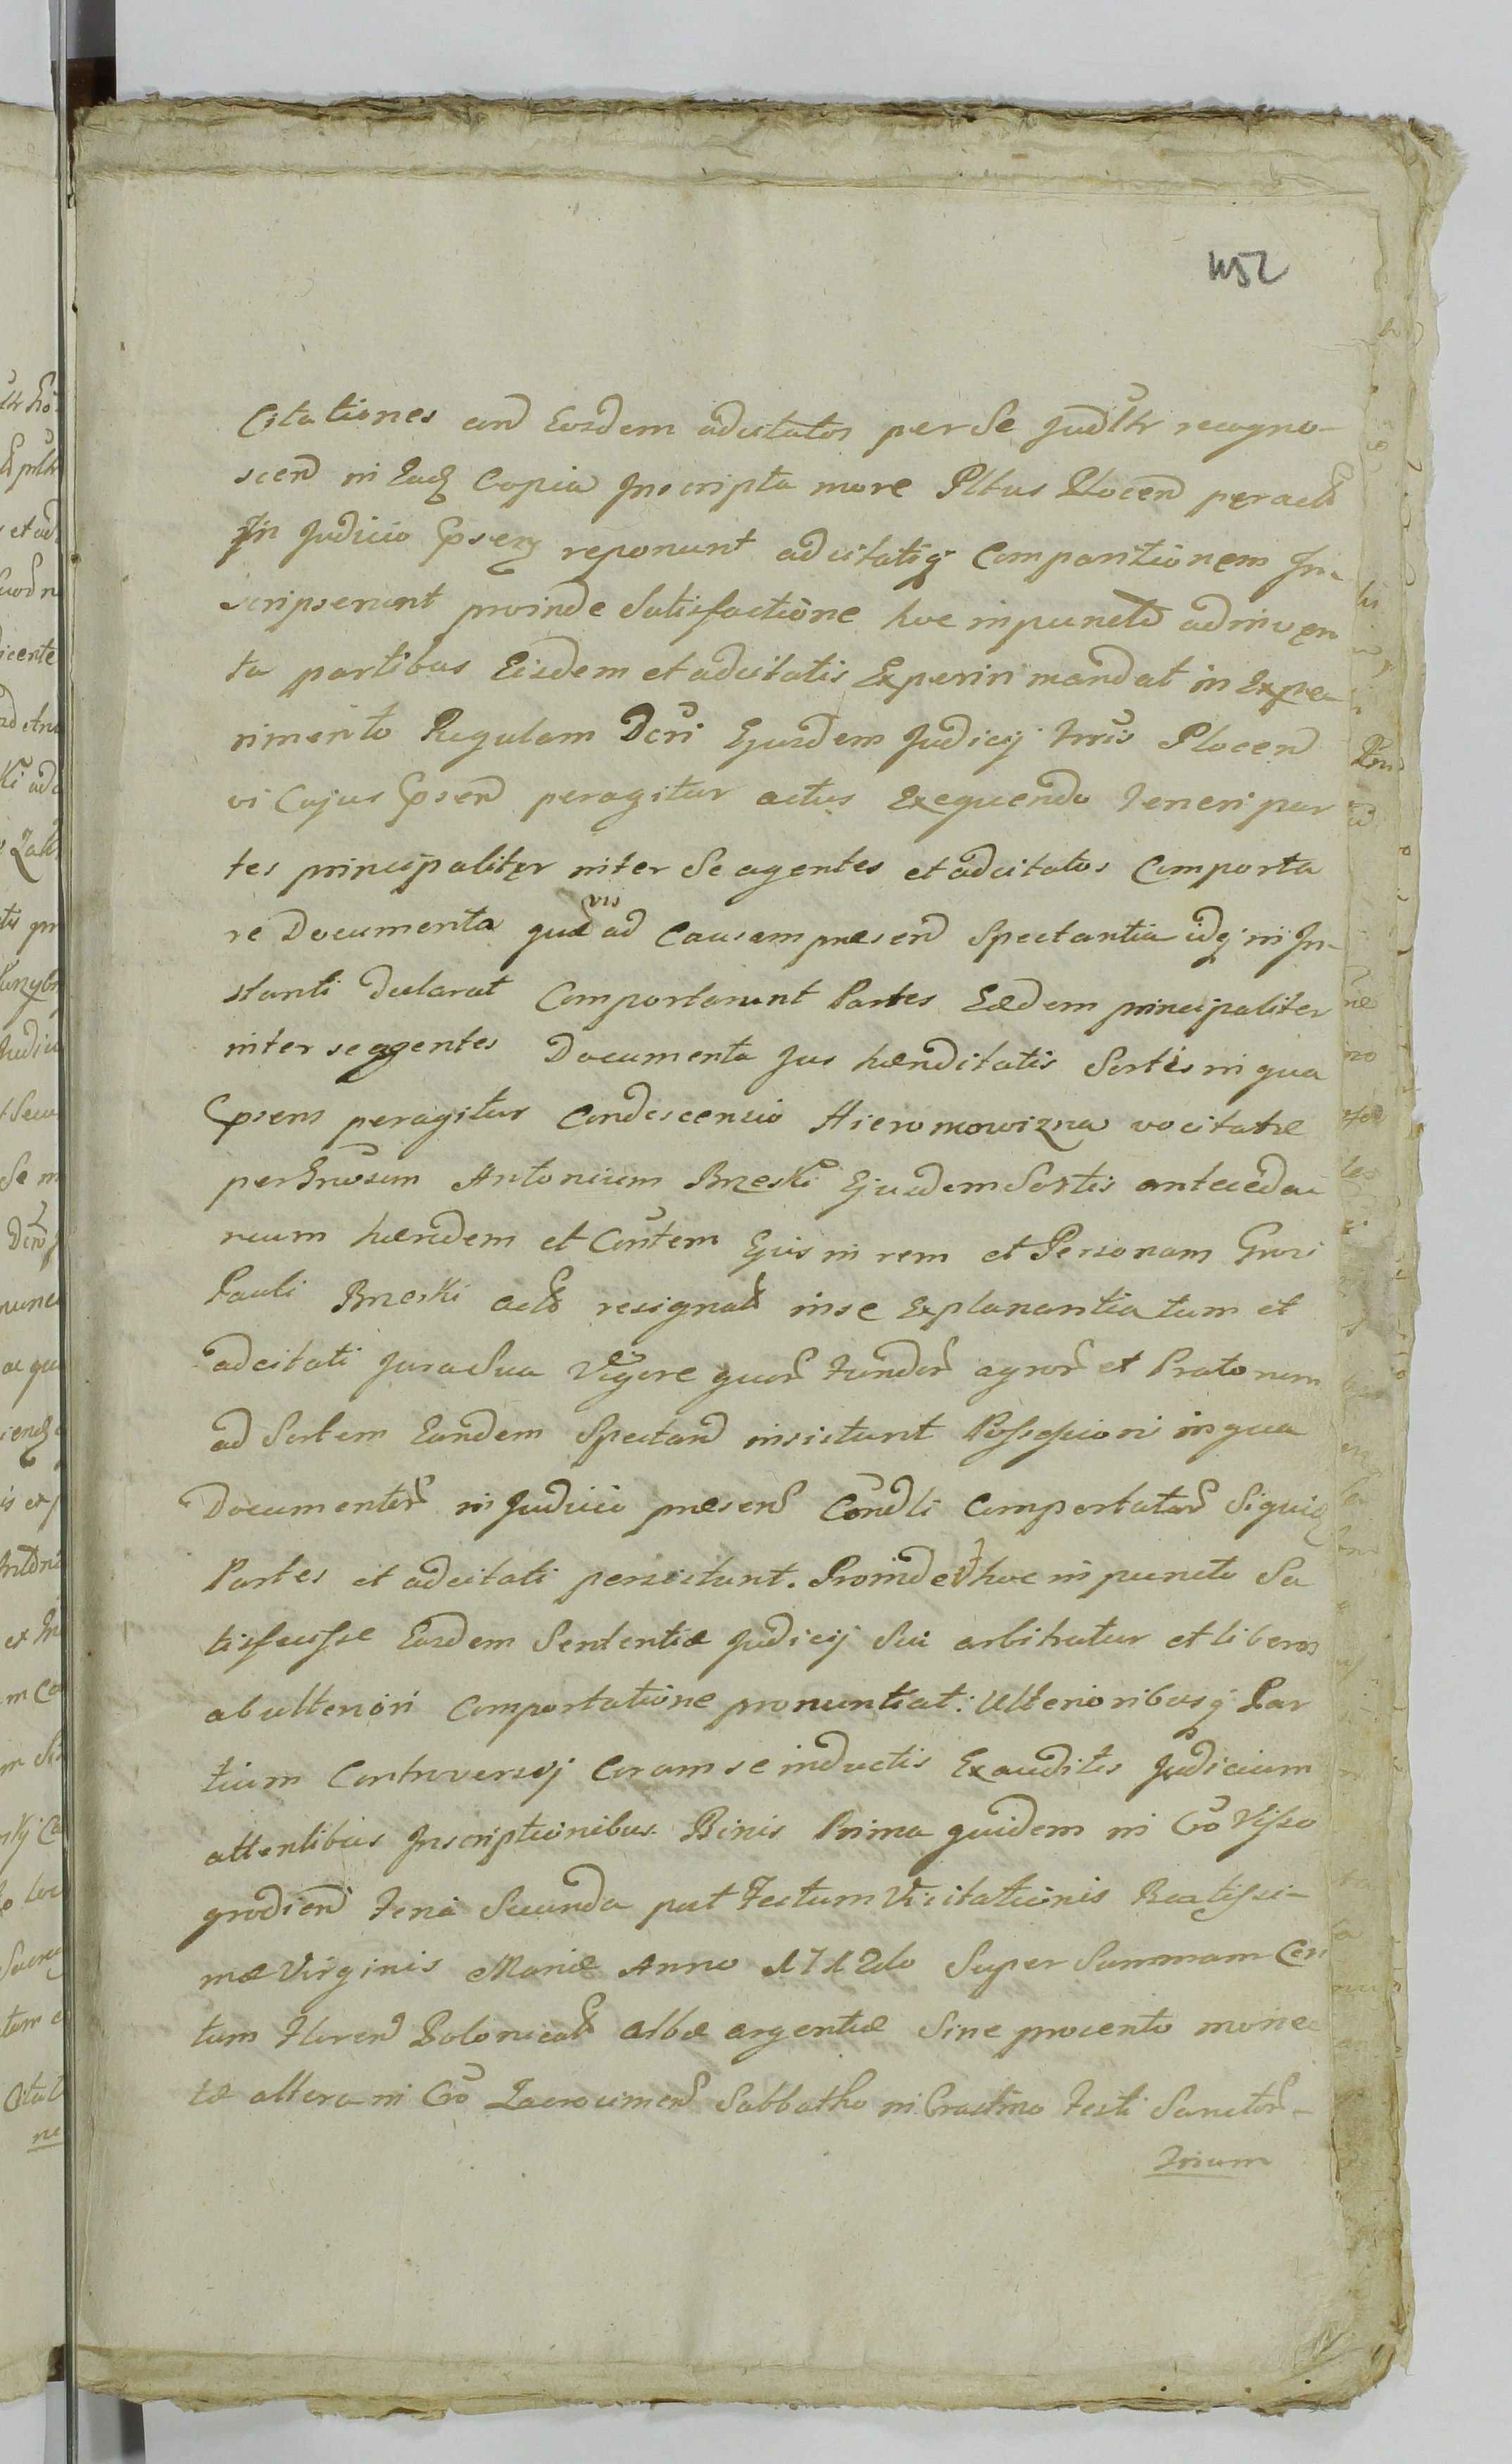 452
Citationes coñ Eosdem adcitatos per se Judltr recogno-
scen in Eadq Copia Inscripta more Pltus Plocen peract
In Judicio pseñ reponunt adcitatiq Comparitionem In-
scripserunt proinde Satisfactione hoc in puncto adinven
ta partibus Eisdem et adcitatis Experiri mandat in Expe-
rimento Regulam Dcri Ejusdem Judicij Trris Plocen
vi Cujus psen peragitur actus Exequendo Teneri par
tes principaliter inter Se agentes et adcitatos Comporta
re Documenta quævis ad Causam præsen Spectantia idq in In-
stanti declarat Comportarunt Partes Eædem principaliter
inter se agentes Documenta Jus hæreditatis Sortis in qua
psens peragitur Condescensio Hieromowizna vocitatæ
per Gnosum Antonium Brzeski Ejusdem Sortis anteceda
neum hæredem et Contem Ejus in rem et Personam Gnosi
Pauli Brzeski act resignat in se Explanantia tum et
adcitati Jura Sua Vigore quor fundor agror et Pratorum
ad Sortem Eandem Spectand insistunt Possessioni in qua
Documentor in Judicio præsen Condli Comportator Siquid
Partes et adcitati persistunt. Proinde hoc in puncto Sa
tisfecisse Eosdem Sententiæ Judicij Sui arbitratur et liberos
ab ulteriori Comportatione pronuntiat: Ulterioribusq Par
tium Controversij Coram se inductis Exauditis Judicium
attentibus Inscriptionibus Binis Prima quidem in Cõ Visso
grodien Feria Secunda post Festum Visitationis Beatissi-
mæ Virginis Mariæ Anno 1712do Super Summam Cen
tum Floren Polonical albæ argenteæ Sine procento mone
tæ altera in Cõ Zacrocimen Sabbatho in Crastino Festi Sanctor-
Trium